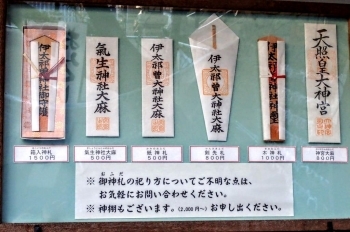 伊太祁曽神社御守護
氣生神社大麻
伊太祁曽神社大麻
伊太祁曽大神社大麻
天照皇大神宮
箱入神札
1500円
氣生神社大麻
500円
500円
剣先札
600円
木神札
1000円
神宮大麻
800円
おふだ
※御神札の祀り方についてご不明な点は、
お気軽にお問い合わせください。
※神棚もございます。(2,000円~)お申し出ください。